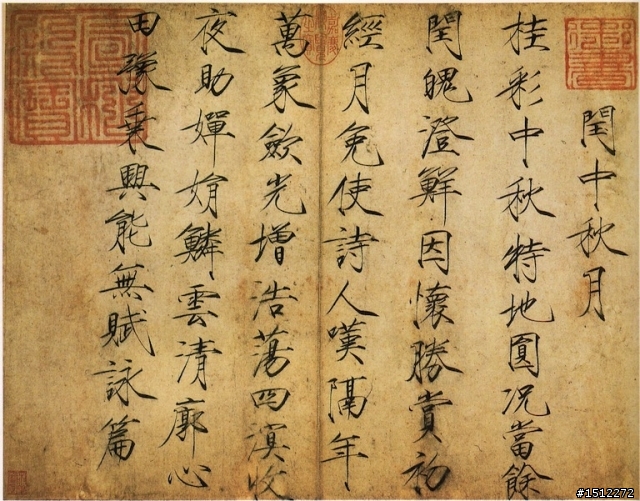 閏中秋月
桂彩中秋特地圓况當餘
閏魄澄鮮因懷勝賞初
經月免使詩人嘆隔年
萬象歛光增浩蕩四溟收
夜助嬋娟鱗雲清廓心
田豫乗興能無賦詠篇
#1512272